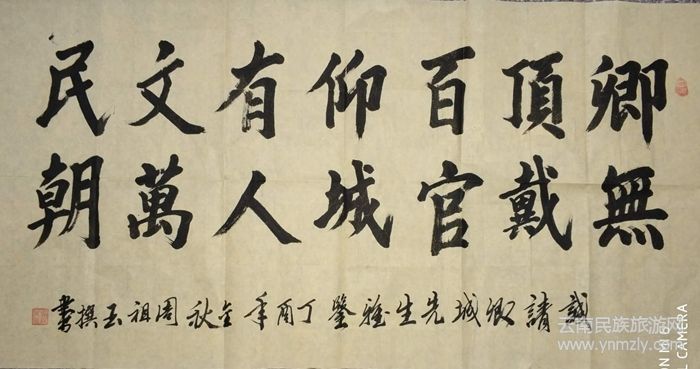 卿無
頂戴
百官
仰城
有人
文萬
民朝
誠請卿城先生雅鑒丁酉年金秋周祖玉撰書
云南民族旅游网
www.ynmzly.com
ON MI 6
L CAMERA